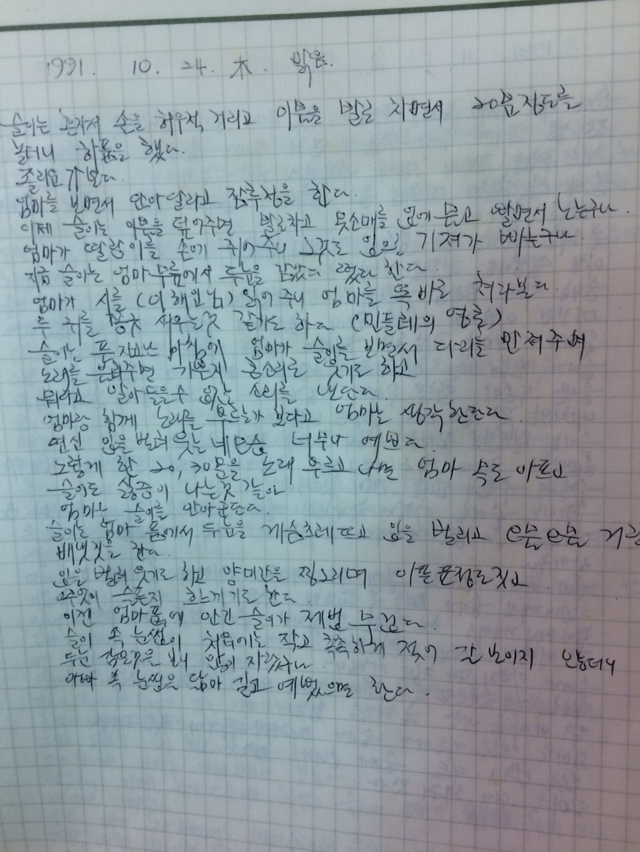 1991. 10. 24. 木. 맑음.
슬이는 혼자서 손을 허우적 거리고 이불을 발로 치면서 20분정도를
놀더니 하품을 했다.
졸리운가 보다.
엄마를 보면서 안아달라고 잠투정을 한다.
이제 슬이는 이불을 덮어주면 발로차고 옷소매를 입에 물고 빨면서 노는구나.
엄마가 딸랑이를 손에 쥐어주니 그것도 입으로 가져가 빠는구나
지금 슬이는 엄마 무릎에서 두눈을 감았다 떴다 한다.
엄마가 시를 (이해인님) 읽어 주니 엄마를 똑바로 쳐다보다
두 귀를 쫑긋 세우는것 같기도 하다 (민들레의 영토)
슬이는 아침에 엄마가 슬이를 보면서 다리를 만져주며
노래를 불러주면 기분좋게 웃기도 하고
뭐라고 알아들을수 없는 소리를 낸단다.
엄마랑 함께 노래를 부르는가 보다고 엄마는 생각한단다.
연신 입을 벌려 웃는 네모습 너무나 예쁘다.
그렇게 한 20, 30분을 노래 부르고 나면 엄마 속도 아프고
슬이도 싫증이 나는것 같아
엄마는 슬이를 안아준단다.
슬이는 엄마 품에서 두눈을 게슴츠레 뜨고 입을 벌리고 응응 거리며
배냇짓을 한다.
입을 벌려 웃기도 하고 양미간을 찡그리며 아픈표정도짓고
무엇이 슬픈지 흐느끼기도한다.
이젠 엄마품에 안긴 슬이가 제법 무겁다.
슬이 속 눈썹이 처음에는 작고 촉촉하게 젖어 잘 보이지 않더니
두눈 많이 자랐구나
아빠 속 눈썹을 닮아 길고 예뻤으면 한다.